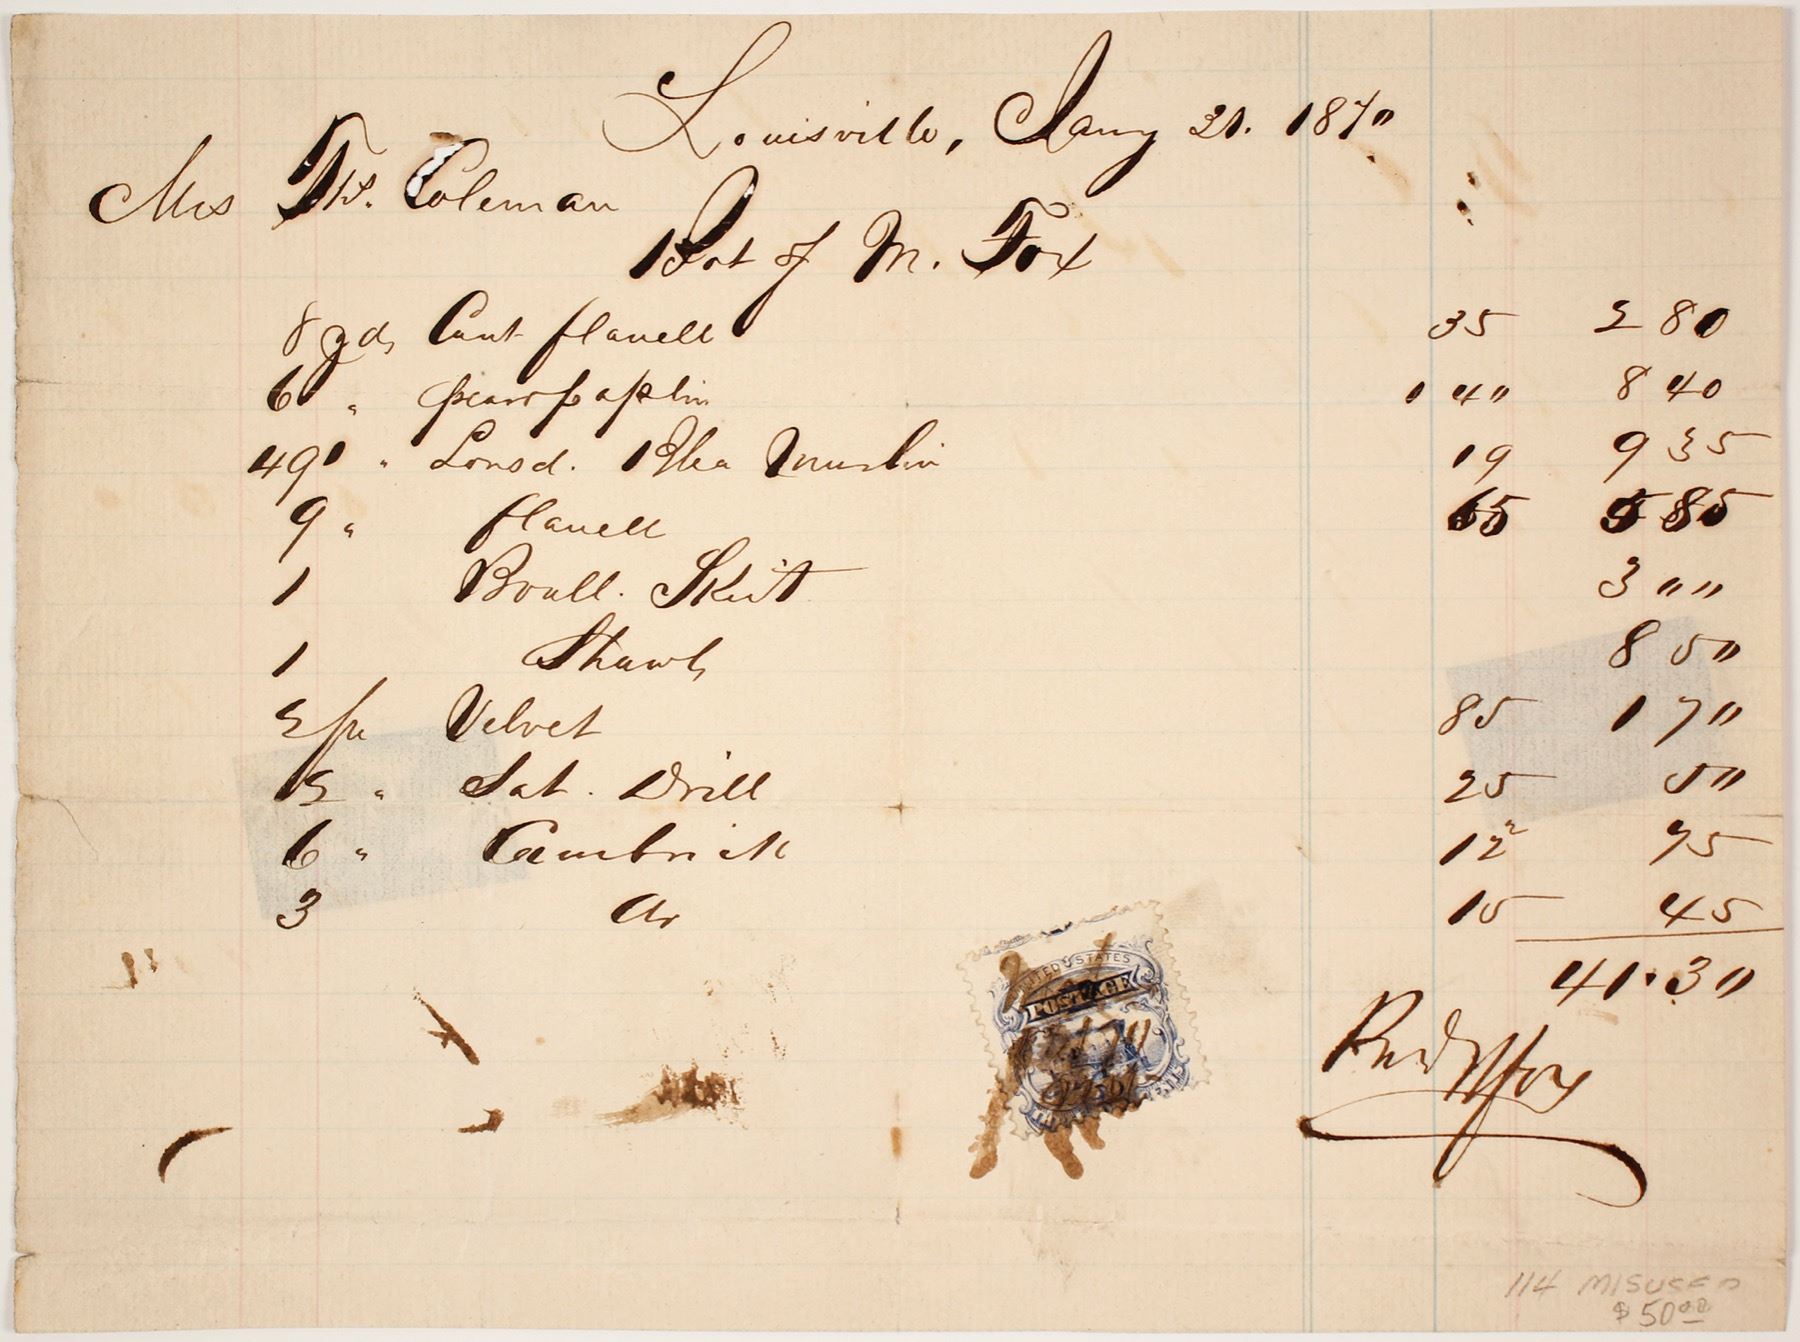 Louisville, Jany 31. 187"
Mrs Ths. Coleman
Bot of M. Fox
8 yds Cant flanell 35 2 80
6 " poplin 1 4" 8 40
49 " Lonsd. Muslin 19 9 35
9 " flanell 65 5 85
1 Boull. Skirt 3 " "
1 Shawl 8 5"
2 ps Velvet 85 1 7"
2 " Sat. Drill 25 5"
6 " Cambrick 12 2 75
3 do 15 45
41.3"
UNITED STATES
POSTAGE
Recd M Fox
114 MISUSED
$50.00